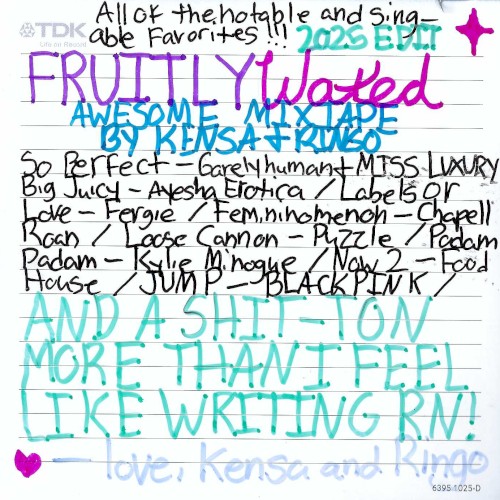 All of the notable and sing-
TDK
Life on Record
able Favorites!!! 2025 EDIT
FRUITLY Waxed
AWESOME MIXTAPE
BY KENSA + RINGO
So Perfect - Garelyhuman + MISS LUXURY
Big Juicy - Ayesha Erotica / Labels or
Love - Fergie / Femininomenon - Chapell
Roan / Loose Cannon - Puzzle / Padam
Padam - Kylie Minogue / Now 2 - Food
House / JUMP - BLACKPINK /
AND A SHIT-TON
MORE THAN I FEEL
LIKE WRITING RN!
- love, Kensa and Ringo
6395 1025-D